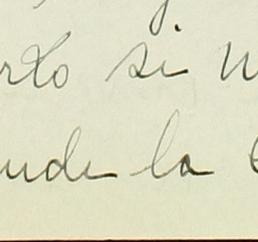 rto si
ude la